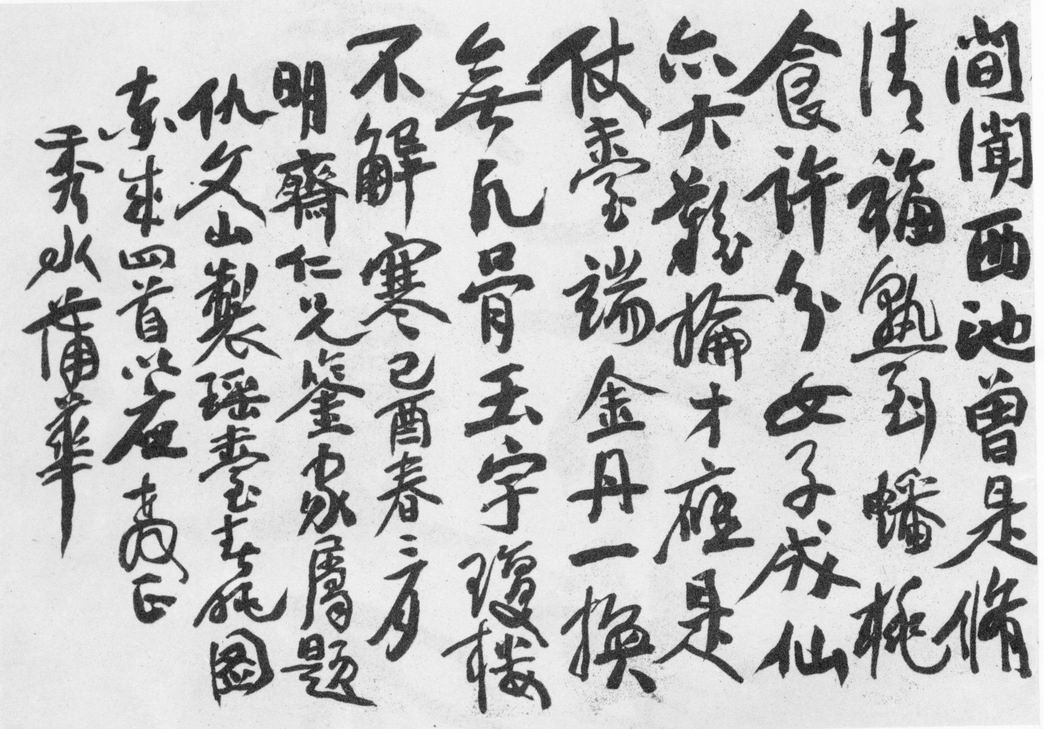 間聞西池曾是脩
清福熟到蟠桃
食許分女子成仙
亦大難掄才應是
仗臺端金丹一換
無凡骨玉宇瓊樓
不解寒己酉春三月
明齋仁兄鑒家屬題
仇文山製瑤臺圖
率成四首以應教正
秀水蒲華